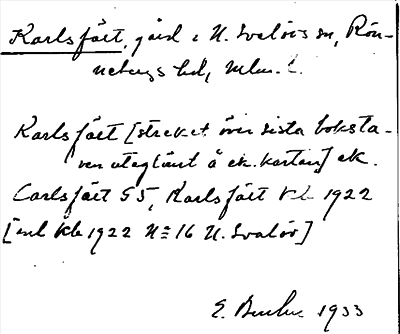 Karlsfält, gård i N. Svalövs sn, Rön-
nebergs hd, Mlm. l.
Karlsfält [strecket över sista boksta-
ven uteglömt å ek. kartan] ek.
Carlsfält 55, Karlsfält kb 1922
[enl kb 1922 N = 16 N. Svalöv]
E. 1933